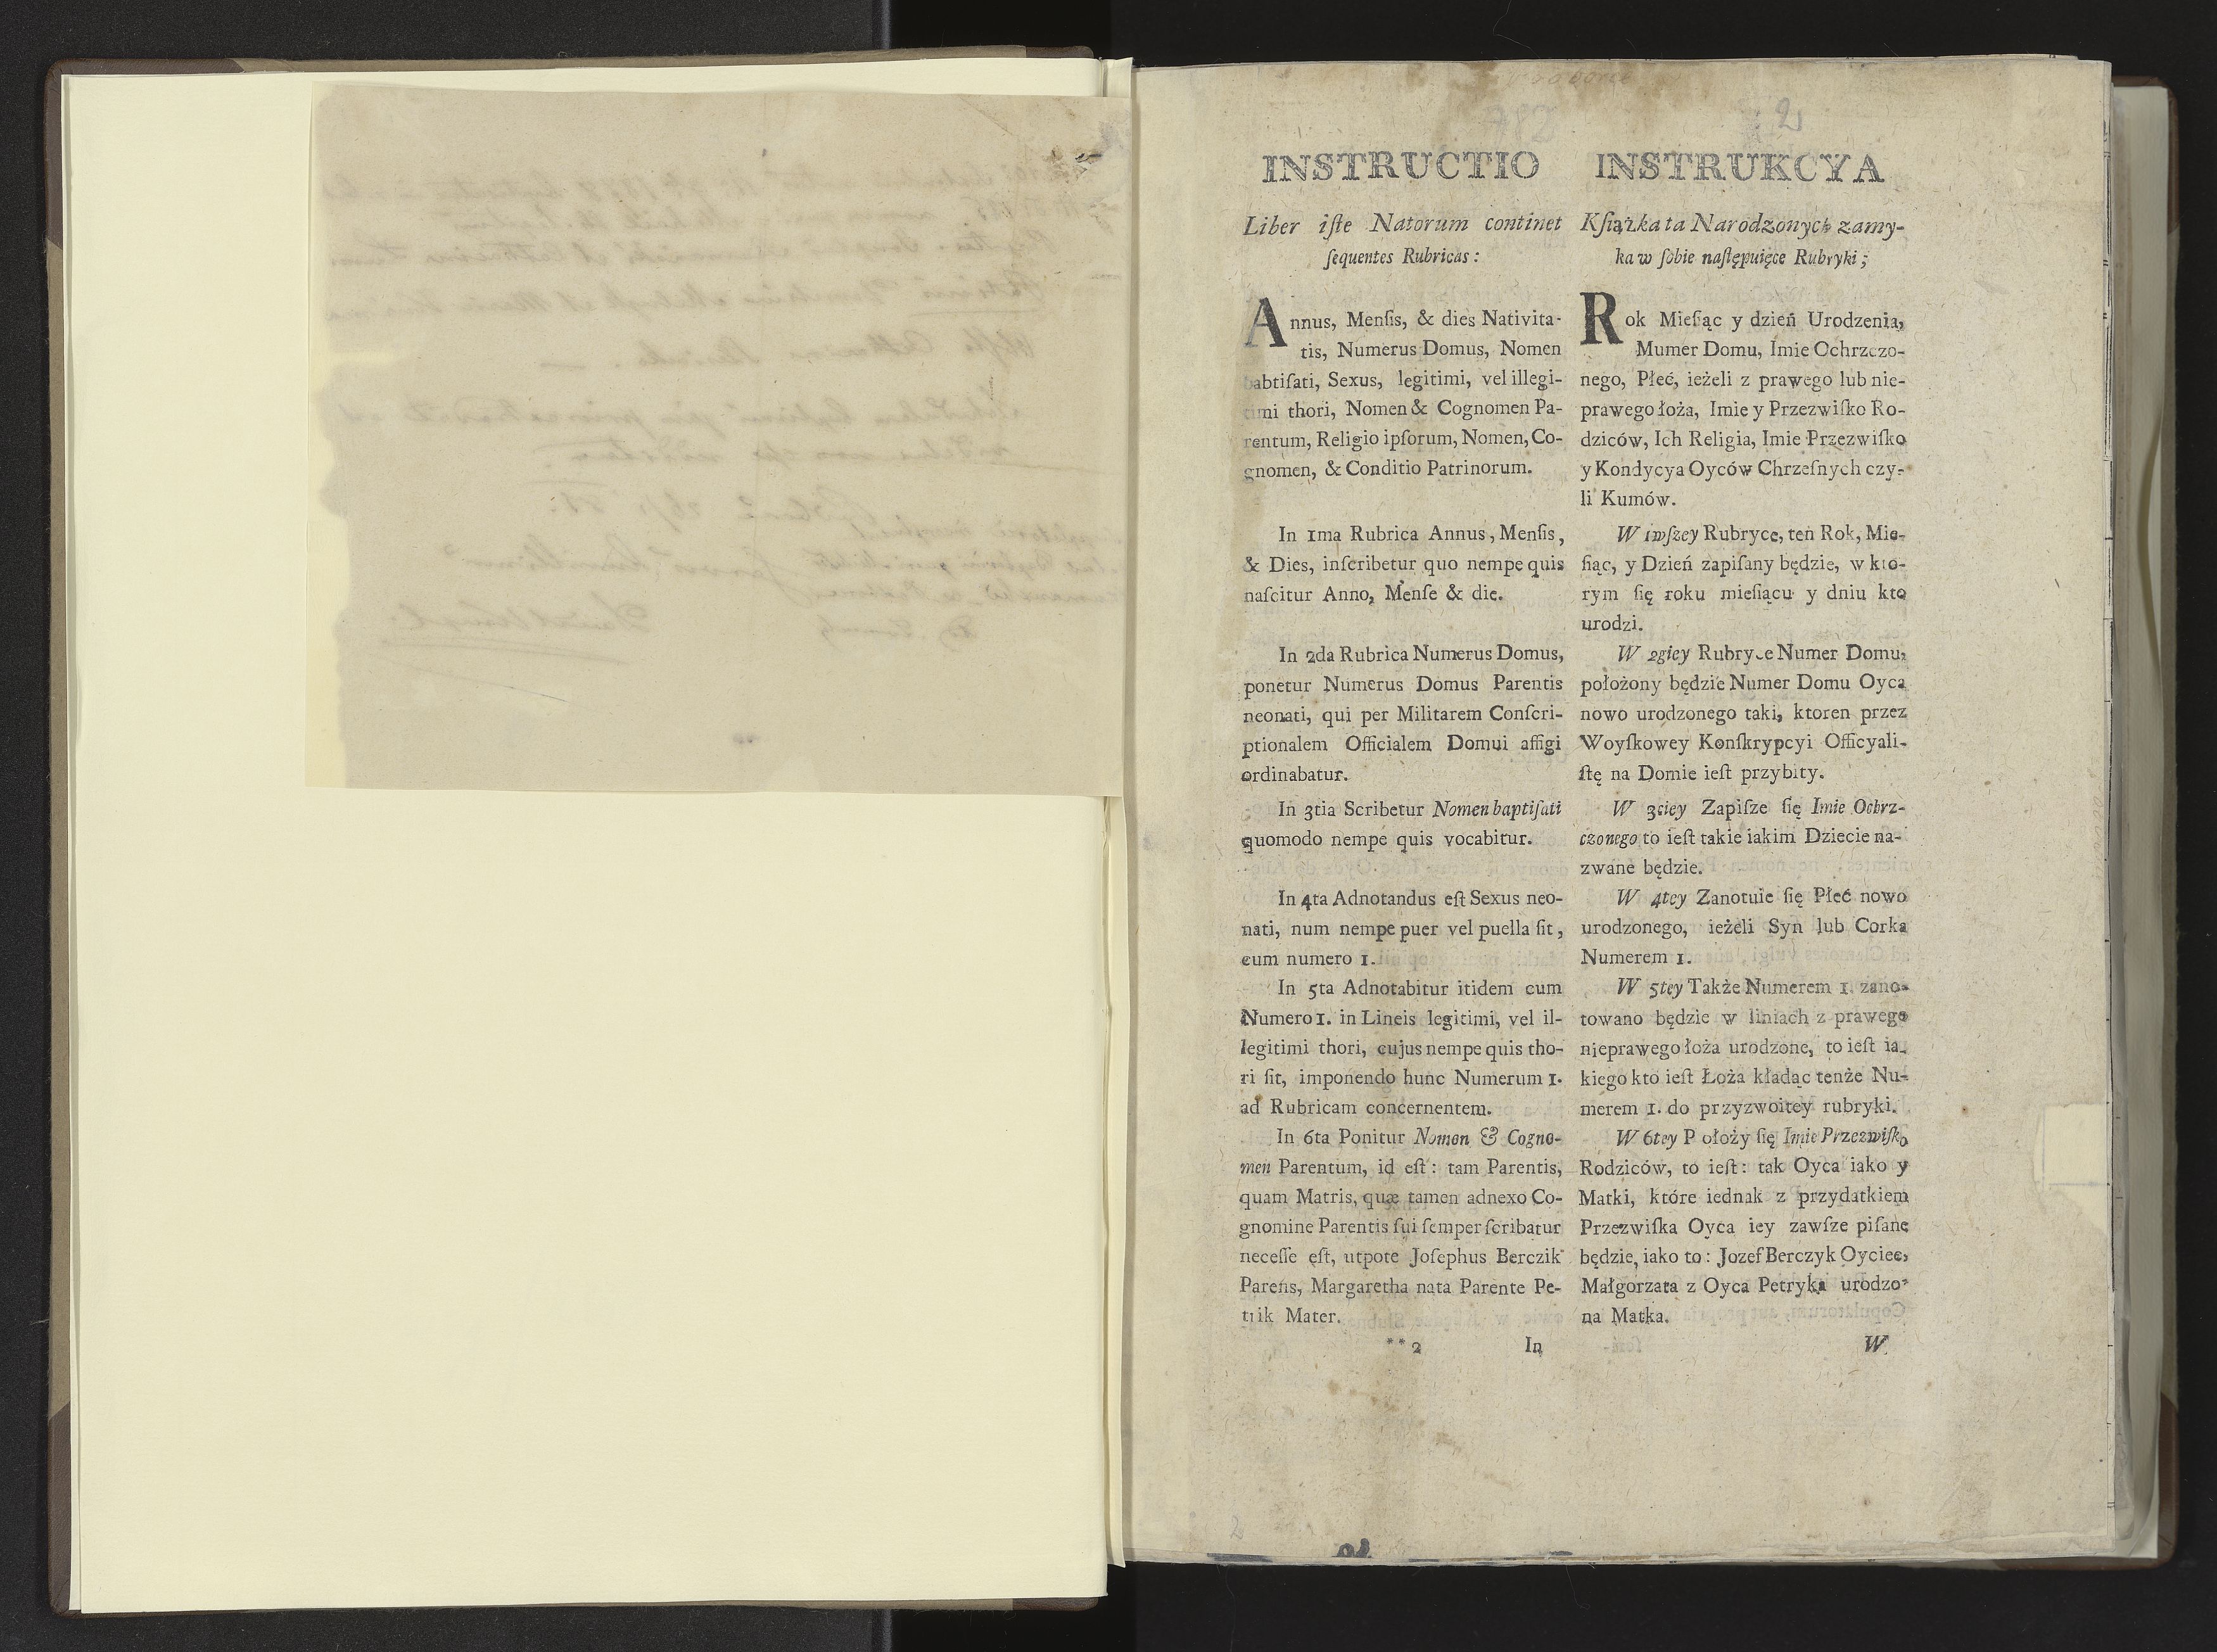 2
INSTRUCTIO
Liber iſte Natorum continet
ſequentes Rubricas:
Annus, Menſis, & dies Nativita-
tis, Numerus Domus, Nomen
babtiſati, Sexus, legitimi, vel illegi-
timi thori, Nomen & Cognomen Pa-
rentum, Religio ipſorum, Nomen, Co-
gnomen, & Conditio Patrinorum.
In 1ma Rubrica Annus, Menſis,
& Dies, inſcribetur quo nempe quis
naſcitur Anno, Menſe & die.
In 2da Rubrica Numerus Domus,
ponetur Numerus Domus Parentis
neonati, qui per Militarem Conſcri-
ptionalem Officialem Domui affigi
ordinabatur.
In 3tia Scribetur Nomen baptiſati
quomodo nempe quis vocabitur.
In 4ta Adnotandus eſt Sexus neo-
nati, num nempe puer vel puella ſit,
cum numero 1.
In 5ta Adnotabitur itidem cum
Numero 1. in Lineis legitimi, vel il-
legitimi thori, cujus nempe quis tho-
ri ſit, imponendo hunc Numerum 1.
ad Rubricam concernentem.
In 6ta Ponitur Nomen & Cogno-
men Parentum, id eſt: tam Parentis,
quam Matris, quæ tamen adnexo Co-
gnomine Parentis ſui ſemper ſcribatur
neceſſe eſt, utpote Joſephus Berczik
Parens, Margaretha nata Parente Pe-
trik Mater.
**2 In
INSTRUKCYA
Kſiążka ta Narodzonych zamy-
ka w ſobie naſtępuięce Rubryki;
Rok Mieſiąc y dzień Urodzenia,
Mumer Domu, Imie Ochrzczo-
nego, Płeć, ieżeli z prawego lub nie-
prawego łoża, Imie y Przezwiſko Ro-
dziców, Ich Religia, Imie Przezwiſko
y Kondycya Oyców Chrzeſnych czy-
li Kumów.
W 1wſzey Rubryce, ten Rok, Mie-
ſiąc, y Dzień zapiſany będzie, w kto-
rym ſię roku mieſiącu y dniu kto
urodzi.
W 2giey Rubryce Numer Domu,
położony będzie Numer Domu Oyca
nowo urodzonego taki, ktoren przez
Woyſkowey Konſkrypcyi Officyali-
ſtę na Domie ieſt przybity.
W 3ciey Zapiſze ſię Imie Ochrz-
czonego to ieſt takie iakim Dziecie na-
zwane będzie.
W 4tey Zanotuie ſię Płeć nowo
urodzonego, ieżeli Syn lub Corka
Numerem 1.
W 5tey Także Numerem 1. zano-
towano będzie w liniach z prawego
nieprawego łoża urodzone, to ieſt ia-
kiego kto ieſt Łoża kładąc tenże Nu-
merem 1. do przyzwoitey rubryki.
W 6tey P ołoży ſię Imie Przezwiſko
Rodziców, to ieſt: tak Oyca iako y
Matki, które iednak z przydatkiem
Przezwiſka Oyca iey zawſze piſane
będzie, iako to: Jozef Berczyk Oyciec,
Małgorzata z Oyca Petryka urodzo-
na Matka.
W
2